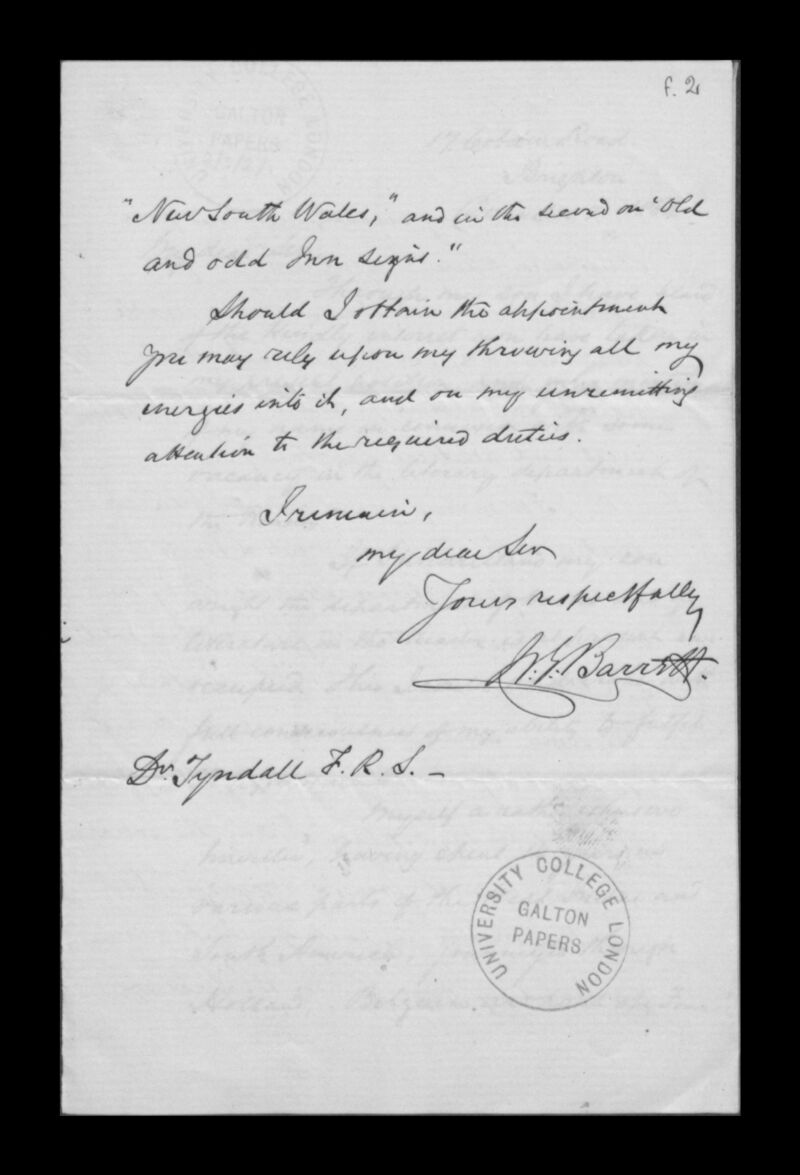 f. 2
"New South Wales," and in the second on "Old
and odd Inn signs."
Should I obtain the appointment
you may rely upon my throwing all my
energies into it, and on my unremitting
attention to the required duties.
I remain,
my dear Sir
Yours respectfully
W. G. Barrett.
Dr. Tyndall F. R. S. –
UNIVERSITY COLLEGE LONDON
GALTON
PAPERS